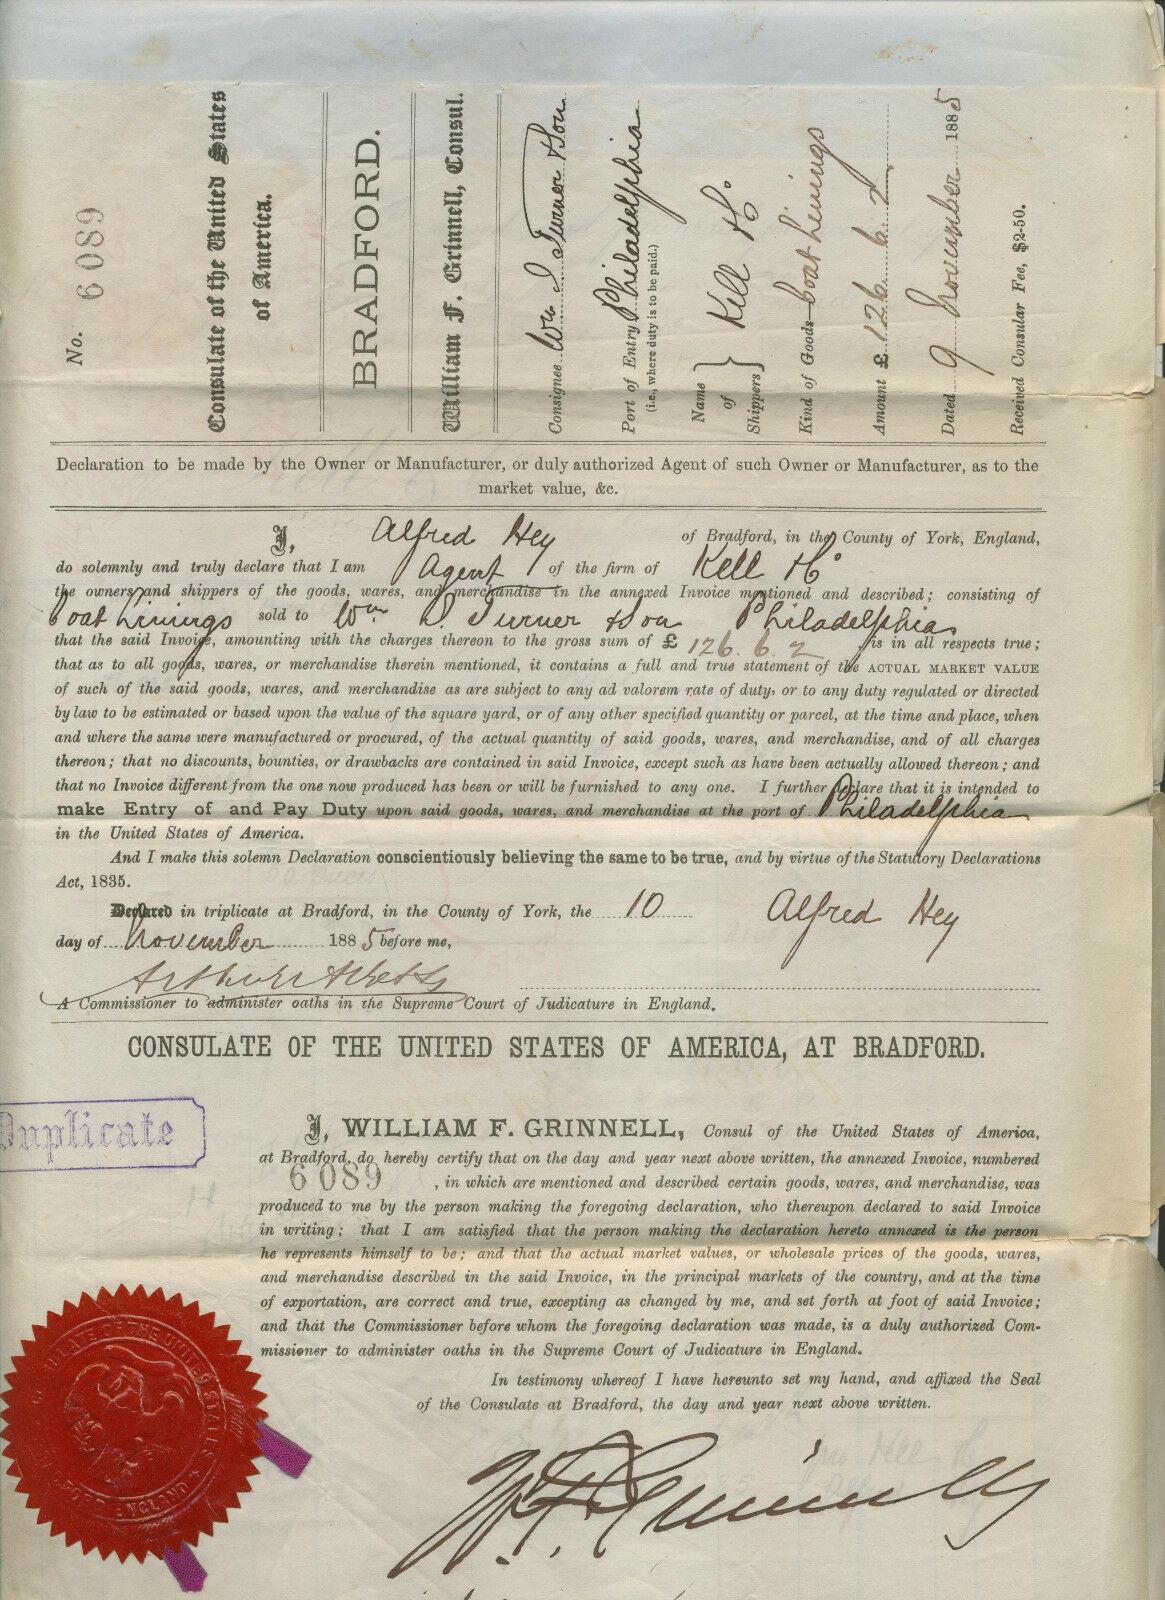 No. 6089
Consulate of the United States
of America.
BRADFORD.
William F. Grinnell, Consul.
Consignee Wm I Turner & Son
Port of Entry Philadelphia
(i.e., where duty is to be paid.)
Name of Shippers } Kell & Co
Kind of Goods Coat Linings
Amount £ 126 6 2
Dated 9 November 1885
Received Consular Fee, $2·50.
Declaration to be made by the Owner or Manufacturer, or duly authorized Agent of such Owner or Manufacturer, as to the
market value, &c.
I, Alfred Hey of Bradford, in the County of York, England,
do solemnly and truly declare that I am Agent of the firm of Kell & Co
the owners and shippers of the goods, wares, and merchandise in the annexed Invoice mentioned and described; consisting of
Coat Linings sold to Wm I. Turner & Son Philadelphia
that the said Invoice, amounting with the charges thereon to the gross sum of £ 126. 6. 2 is in all respects true;
that as to all goods, wares, or merchandise therein mentioned, it contains a full and true statement of the ACTUAL MARKET VALUE
of such of the said goods, wares, and merchandise as are subject to any ad valorem rate of duty, or to any duty regulated or directed
by law to be estimated or based upon the value of the square yard, or of any other specified quantity or parcel, at the time and place, when
and where the same were manufactured or procured, of the actual quantity of said goods, wares, and merchandise, and of all charges
thereon; that no discounts, bounties, or drawbacks are contained in said Invoice, except such as have been actually allowed thereon; and
that no Invoice different from the one now produced has been or will be furnished to any one. I further declare that it is intended to
make Entry of and Pay Duty upon said goods, wares, and merchandise at the port of Philadelphia
in the United States of America.
And I make this solemn Declaration conscientiously believing the same to be true, and by virtue of the Statutory Declarations
Act, 1835.
Declared in triplicate at Bradford, in the County of York, the 10 Alfred Hey
day of November 1885 before me,
A Commissioner to administer oaths in the Supreme Court of Judicature in England.
CONSULATE OF THE UNITED STATES OF AMERICA, AT BRADFORD.
Duplicate
I, WILLIAM F. GRINNELL, Consul of the United States of America,
at Bradford, do hereby certify that on the day and year next above written, the annexed Invoice, numbered
6089, in which are mentioned and described certain goods, wares, and merchandise, was
produced to me by the person making the foregoing declaration, who thereupon declared to said Invoice
in writing; that I am satisfied that the person making the declaration hereto annexed is the person
he represents himself to be; and that the actual market values, or wholesale prices of the goods, wares,
and merchandise described in the said Invoice, in the principal markets of the country, and at the time
of exportation, are correct and true, excepting as changed by me, and set forth at foot of said Invoice;
and that the Commissioner before whom the foregoing declaration was made, is a duly authorized Com-
missioner to administer oaths in the Supreme Court of Judicature in England.
In testimony whereof I have hereunto set my hand, and affixed the Seal
of the Consulate at Bradford, the day and year next above written.
W. F. Grinnell
OF THE UNITED STATES
ENGLAND